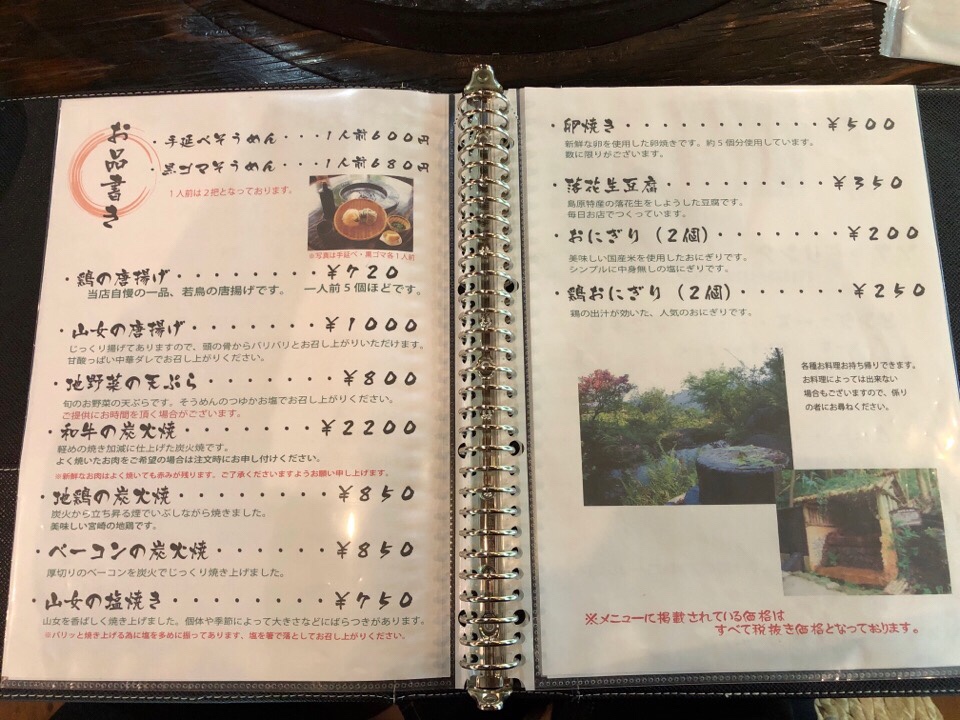 お品書き
・手延べそうめん・・・1人前600円
・黒ゴマそうめん・・・1人前680円
1人前は2把となっております。
※写真は手延べ・黒ゴマ各1人前
・鶏の唐揚げ・・・・・・・・¥720
当店自慢の一品、若鳥の唐揚げです。 一人前5個ほどです。
・山女の唐揚げ・・・・・・・¥1000
じっくり揚げてありますので、頭の骨からバリバリとお召し上がりいただけます。
甘酸っぱい中華ダレでお召し上がりください。
・地野菜の天ぷら・・・・・・・¥800
旬のお野菜の天ぷらです。そうめんのつゆかお塩でお召し上がりください。
ご提供にお時間を頂く場合がございます。
・和牛の炭火焼・・・・・・・¥2200
軽めの焼き加減に仕上げた炭火焼です。
よく焼いたお肉をご希望の場合は注文時にお申し付けください。
※新鮮なお肉はよく焼いても赤みが残ります。ご了承くださいますようお願い申し上げます。
・地鶏の炭火焼・・・・・・・・¥850
炭火から立ち昇る煙でいぶしながら焼きました。
美味しい宮崎の地鶏です。
・ベーコンの炭火焼・・・・・・¥850
厚切りのベーコンを炭火でじっくり焼き上げました。
・山女の塩焼き・・・・・・・・¥750
山女を香ばしく焼き上げました。個体や季節によって大きさなどにばらつきがあります。
※パリッと焼き上げる為に塩を多めに振ってあります、塩を箸で落としてお召し上がりください。
・卵焼き・・・・・・・・・・・¥500
新鮮な卵を使用した卵焼きです。約5個分使用しています。
数に限りがございます。
・落花生豆腐・・・・・・・・・¥350
島原特産の落花生をしようした豆腐です。
毎日お店でつくっています。
・おにぎり(2個)・・・・・・・¥200
美味しい国産米を使用したおにぎりです。
シンプルに中身無しの塩にぎりです。
・鶏おにぎり(2個)・・・・・・¥250
鶏の出汁が効いた、人気のおにぎりです。
各種お料理お持ち帰りできます。
お料理によっては出来ない
場合もございますので、係り
の者にお尋ねください。
※メニューに掲載されている価格は
すべて税抜き価格となっております。